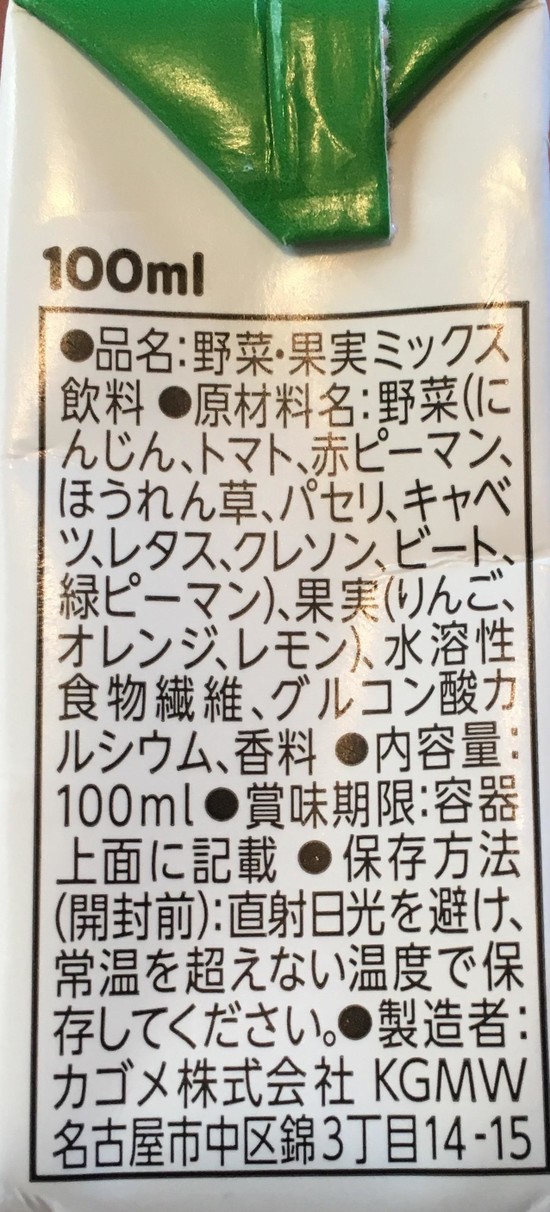 100ml
●品名:野菜・果実ミックス
飲料 ●原材料名:野菜(に
んじん、トマト、赤ピーマン、
ほうれん草、パセリ、キャベ
ツ、レタス、クレソン、ビート、
緑ピーマン)、果実(りんご、
オレンジ、レモン)、水溶性
食物繊維、グルコン酸カ
ルシウム、香料 ●内容量:
100ml●賞味期限:容器
上面に記載 ●保存方法
(開封前):直射日光を避け、
常温を超えない温度で保
存してください。●製造者:
カゴメ株式会社 KGMW
名古屋市中区錦3丁目14-15